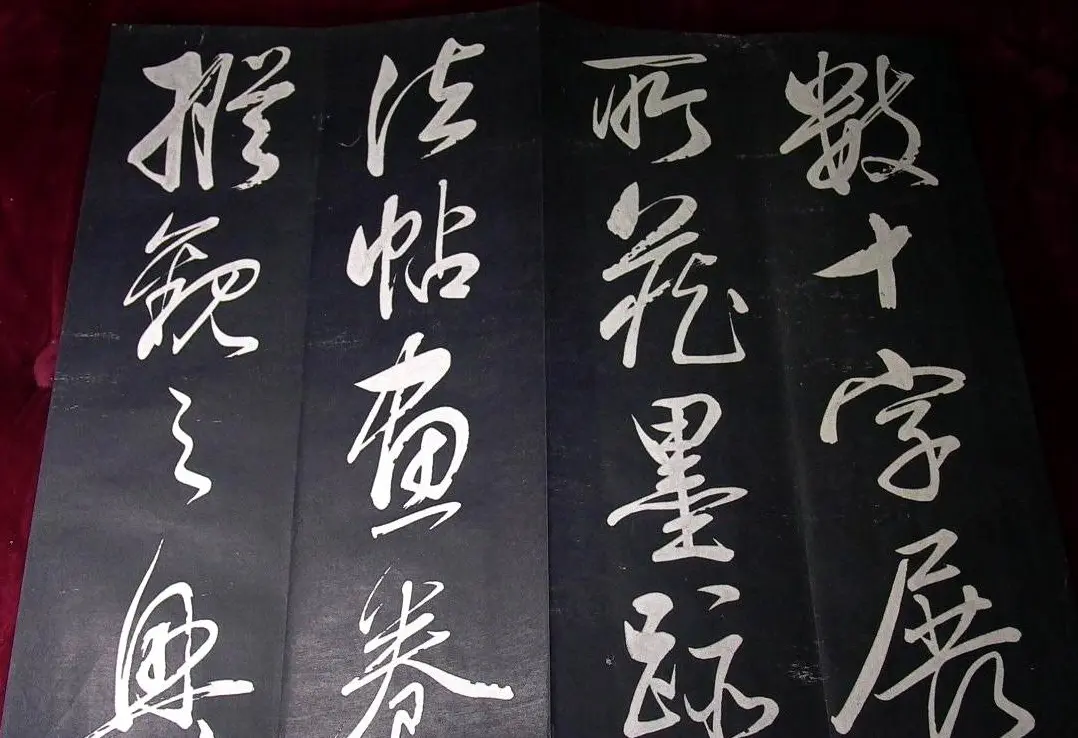 數十字展
所藏墨跡
法帖畫卷
縱觀之興